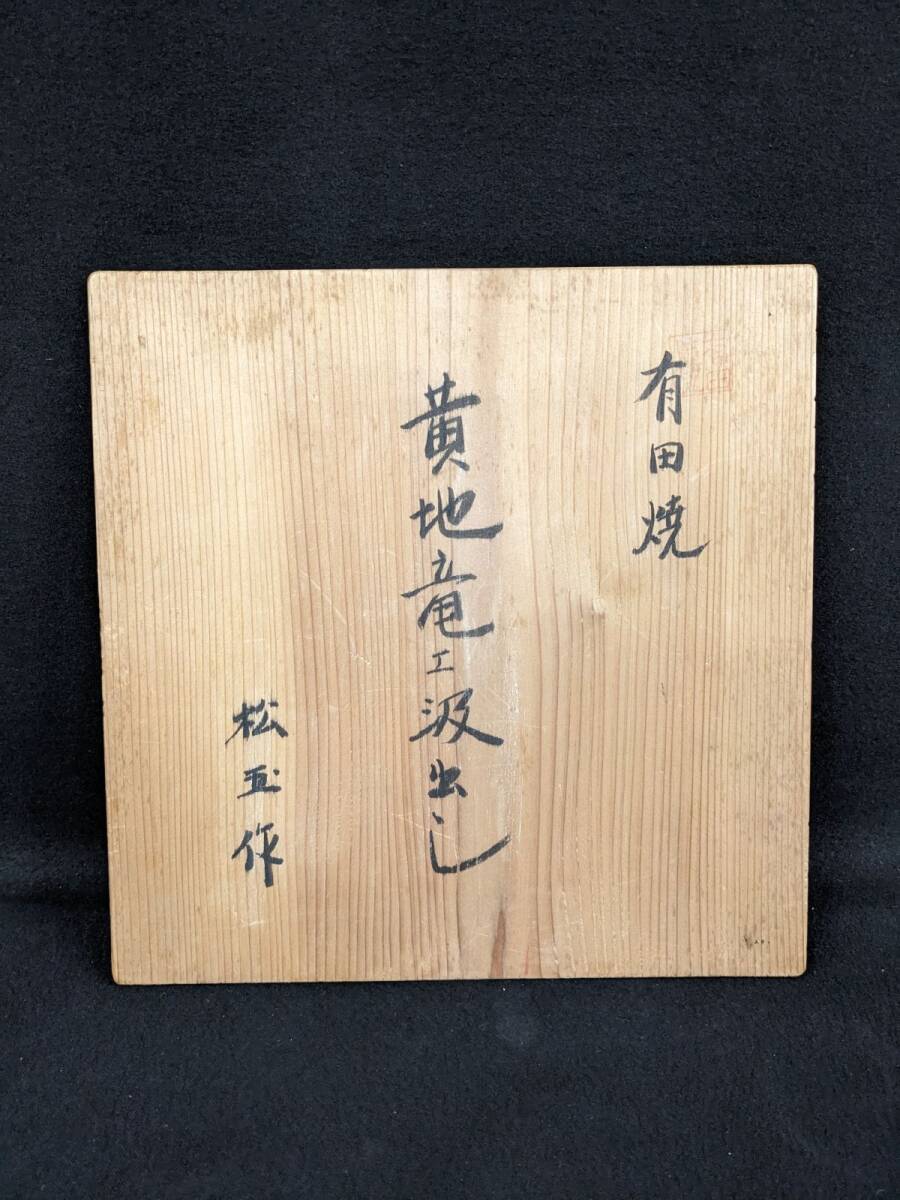 有田焼
黄地竜工汲出し
松玉作